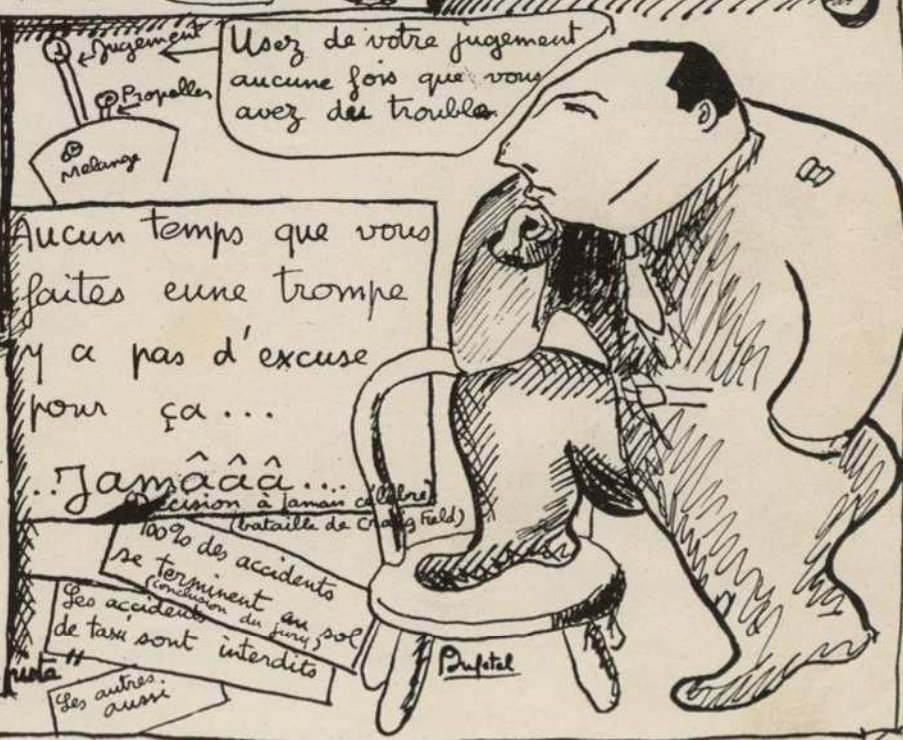 Jugement
Propeller
Melange
Usez de votre jugement
aucune fois que vous
avez du trouble.
Aucun temps que vous
faites eune trompe
y a pas d'excuse
pour ça...
..Jamâââ...
décision à jamais célèbre
(bataille de Craig Field)
100% des accidents
se terminent au sol
(conclusion du jury)
Les accidents
de taxi sont interdits
Les autres
aussi